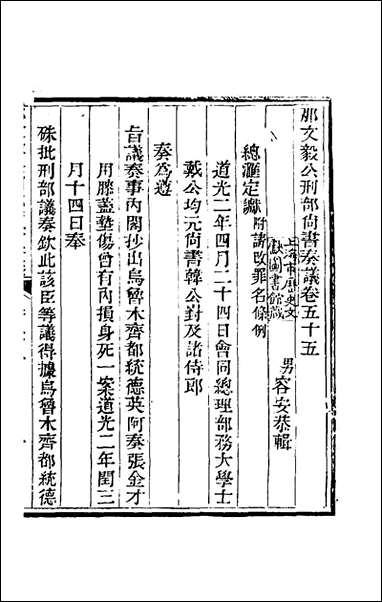 那文毅公刑部尚書奏議卷五十五
上海市歷史文
獻圖書館藏
男容安恭輯
總滙定讞附請改罪名條例
道光二年四月二十四日會同總理部務大學士
戴公均元尚書韓公對及諸侍郎
奏爲遵
旨議奏事內閣抄出烏魯木齊都統德英阿奏張金才
用膝蓋墊傷曾有內損身死一案道光二年閏三
月十四日奉
硃批刑部議奏欽此該臣等議得據烏魯木齊都統德